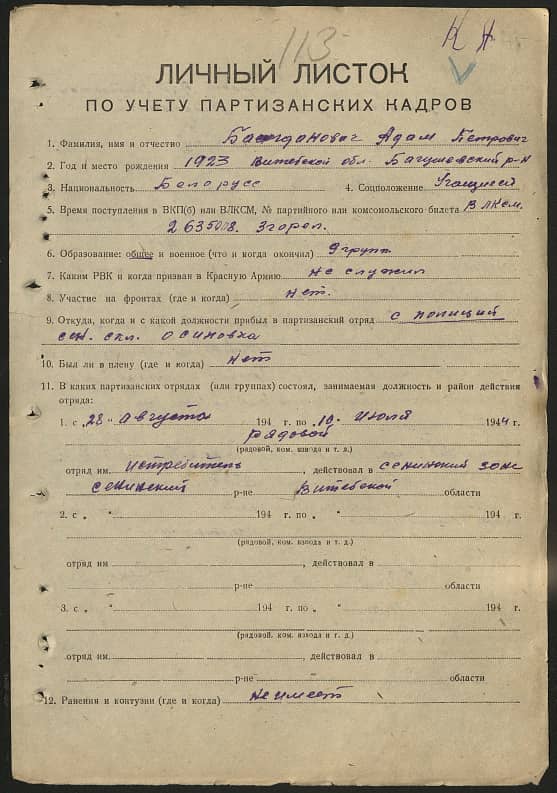 113
К А
ЛИЧНЫЙ ЛИСТОК
ПО УЧЕТУ ПАРТИЗАНСКИХ КАДРОВ
1. Фамилия, имя и отчество Багданович Адам Петрович
2. Год и место рождения 1923 Витебской обл. Багушевский р-н
3. Национальность Белорусс 4. Соцположение Учащийся
5. Время поступления в ВКП(б) или ВЛКСМ, № партийного или комсомольского билета ВЛКСМ.
2635008. Згорел.
6. Образование: общее и военное (что и когда окончил) 9 групп
7. Каким РВК и когда призван в Красную Армию не служил
8. Участие на фронтах (где и когда) нет.
9. Откуда, когда и с какой должности прибыл в партизанский отряд с полиций
осиновка
10. Был ли в плену (где и когда) нет
11. В каких партизанских отрядах (или группах) состоял, занимаемая должность и район действия
отряда:
1. с „28 " августа 194 г. по „10 " июля 1944 г.
рядовой
(рядовой, ком. взвода и т. д.)
отряд им. истребитель, действовал в сенинский зоне
сенинский р-не Витебской области
2. с „ " 194 г. по „ " 194 г.
(рядовой, ком. взвода и т. д.)
отряд им., действовал в
р-не области
3. с „ " 194 г. по „ " 194 г.
(рядовой, ком. взвода и т. д.)
отряд им., действовал в
р-не области
12. Ранения и контузии (где и когда) не имеет